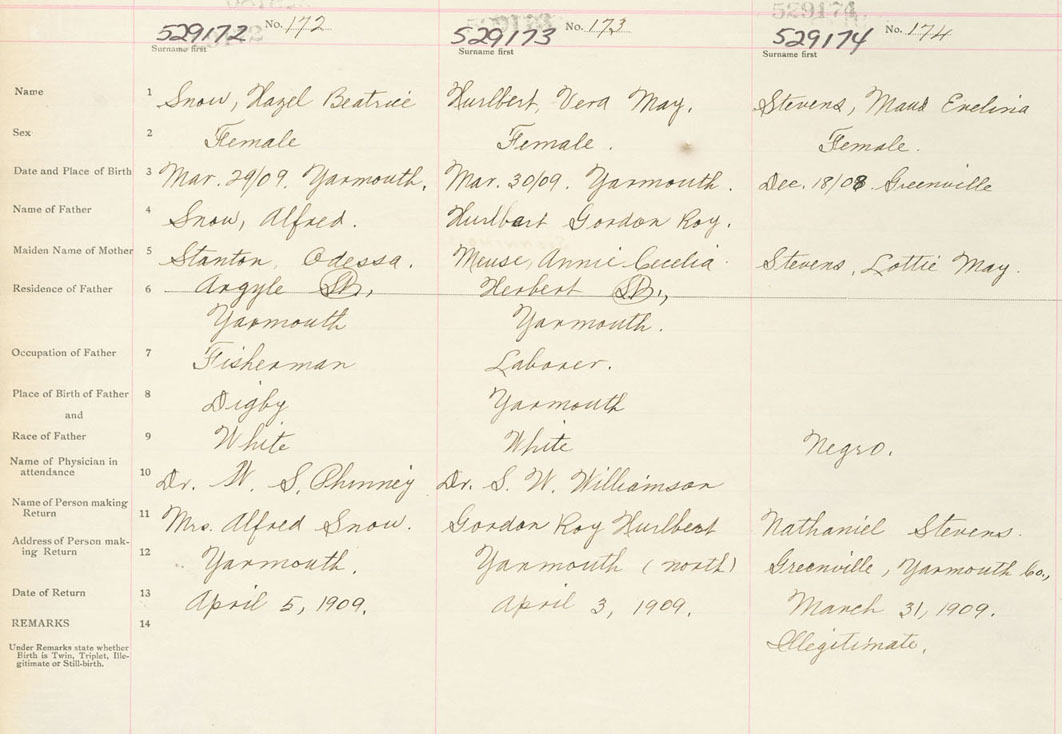 529172 No. 172 529173 No. 173 529174 No. 174
Surname first Surname first Surname first
Name 1 Snow, Hazel Beatrice Hurlbert, Vera May. Stevens, Maud Evelina
Sex 2 Female Female. Female.
Date and Place of Birth 3 Mar. 29/09. Yarmouth. Mar. 30/09. Yarmouth. Dec. 18/08 Greenville
Name of Father 4 Snow, Alfred. Hurlbert Gordon Roy.
Maiden Name of Mother 5 Stanton, Odessa. Meuse, Annie Cecelia. Stevens, Lottie May.
Residence of Father 6 Argyle St., Herbert St.,
Yarmouth Yarmouth.
Occupation of Father 7 Fisherman Laborer.
Place of Birth of Father 8 Digby Yarmouth
and
Race of Father 9 White White Negro.
Name of Physician in
attendance 10 Dr. W. S. Phinney Dr. S. W. Williamson
Name of Person making
Return 11 Mrs. Alfred Snow. Gordon Roy Hurlbert Nathaniel Stevens.
Address of Person mak-
ing Return 12 Yarmouth. Yarmouth (north) Greenville, Yarmouth Co.,
Date of Return 13 April 5, 1909. April 3, 1909. March 31, 1909.
REMARKS 14 Illegitimate.
Under Remarks state whether
Birth is Twin, Triplet, Ille-
gitimate or Still-birth.